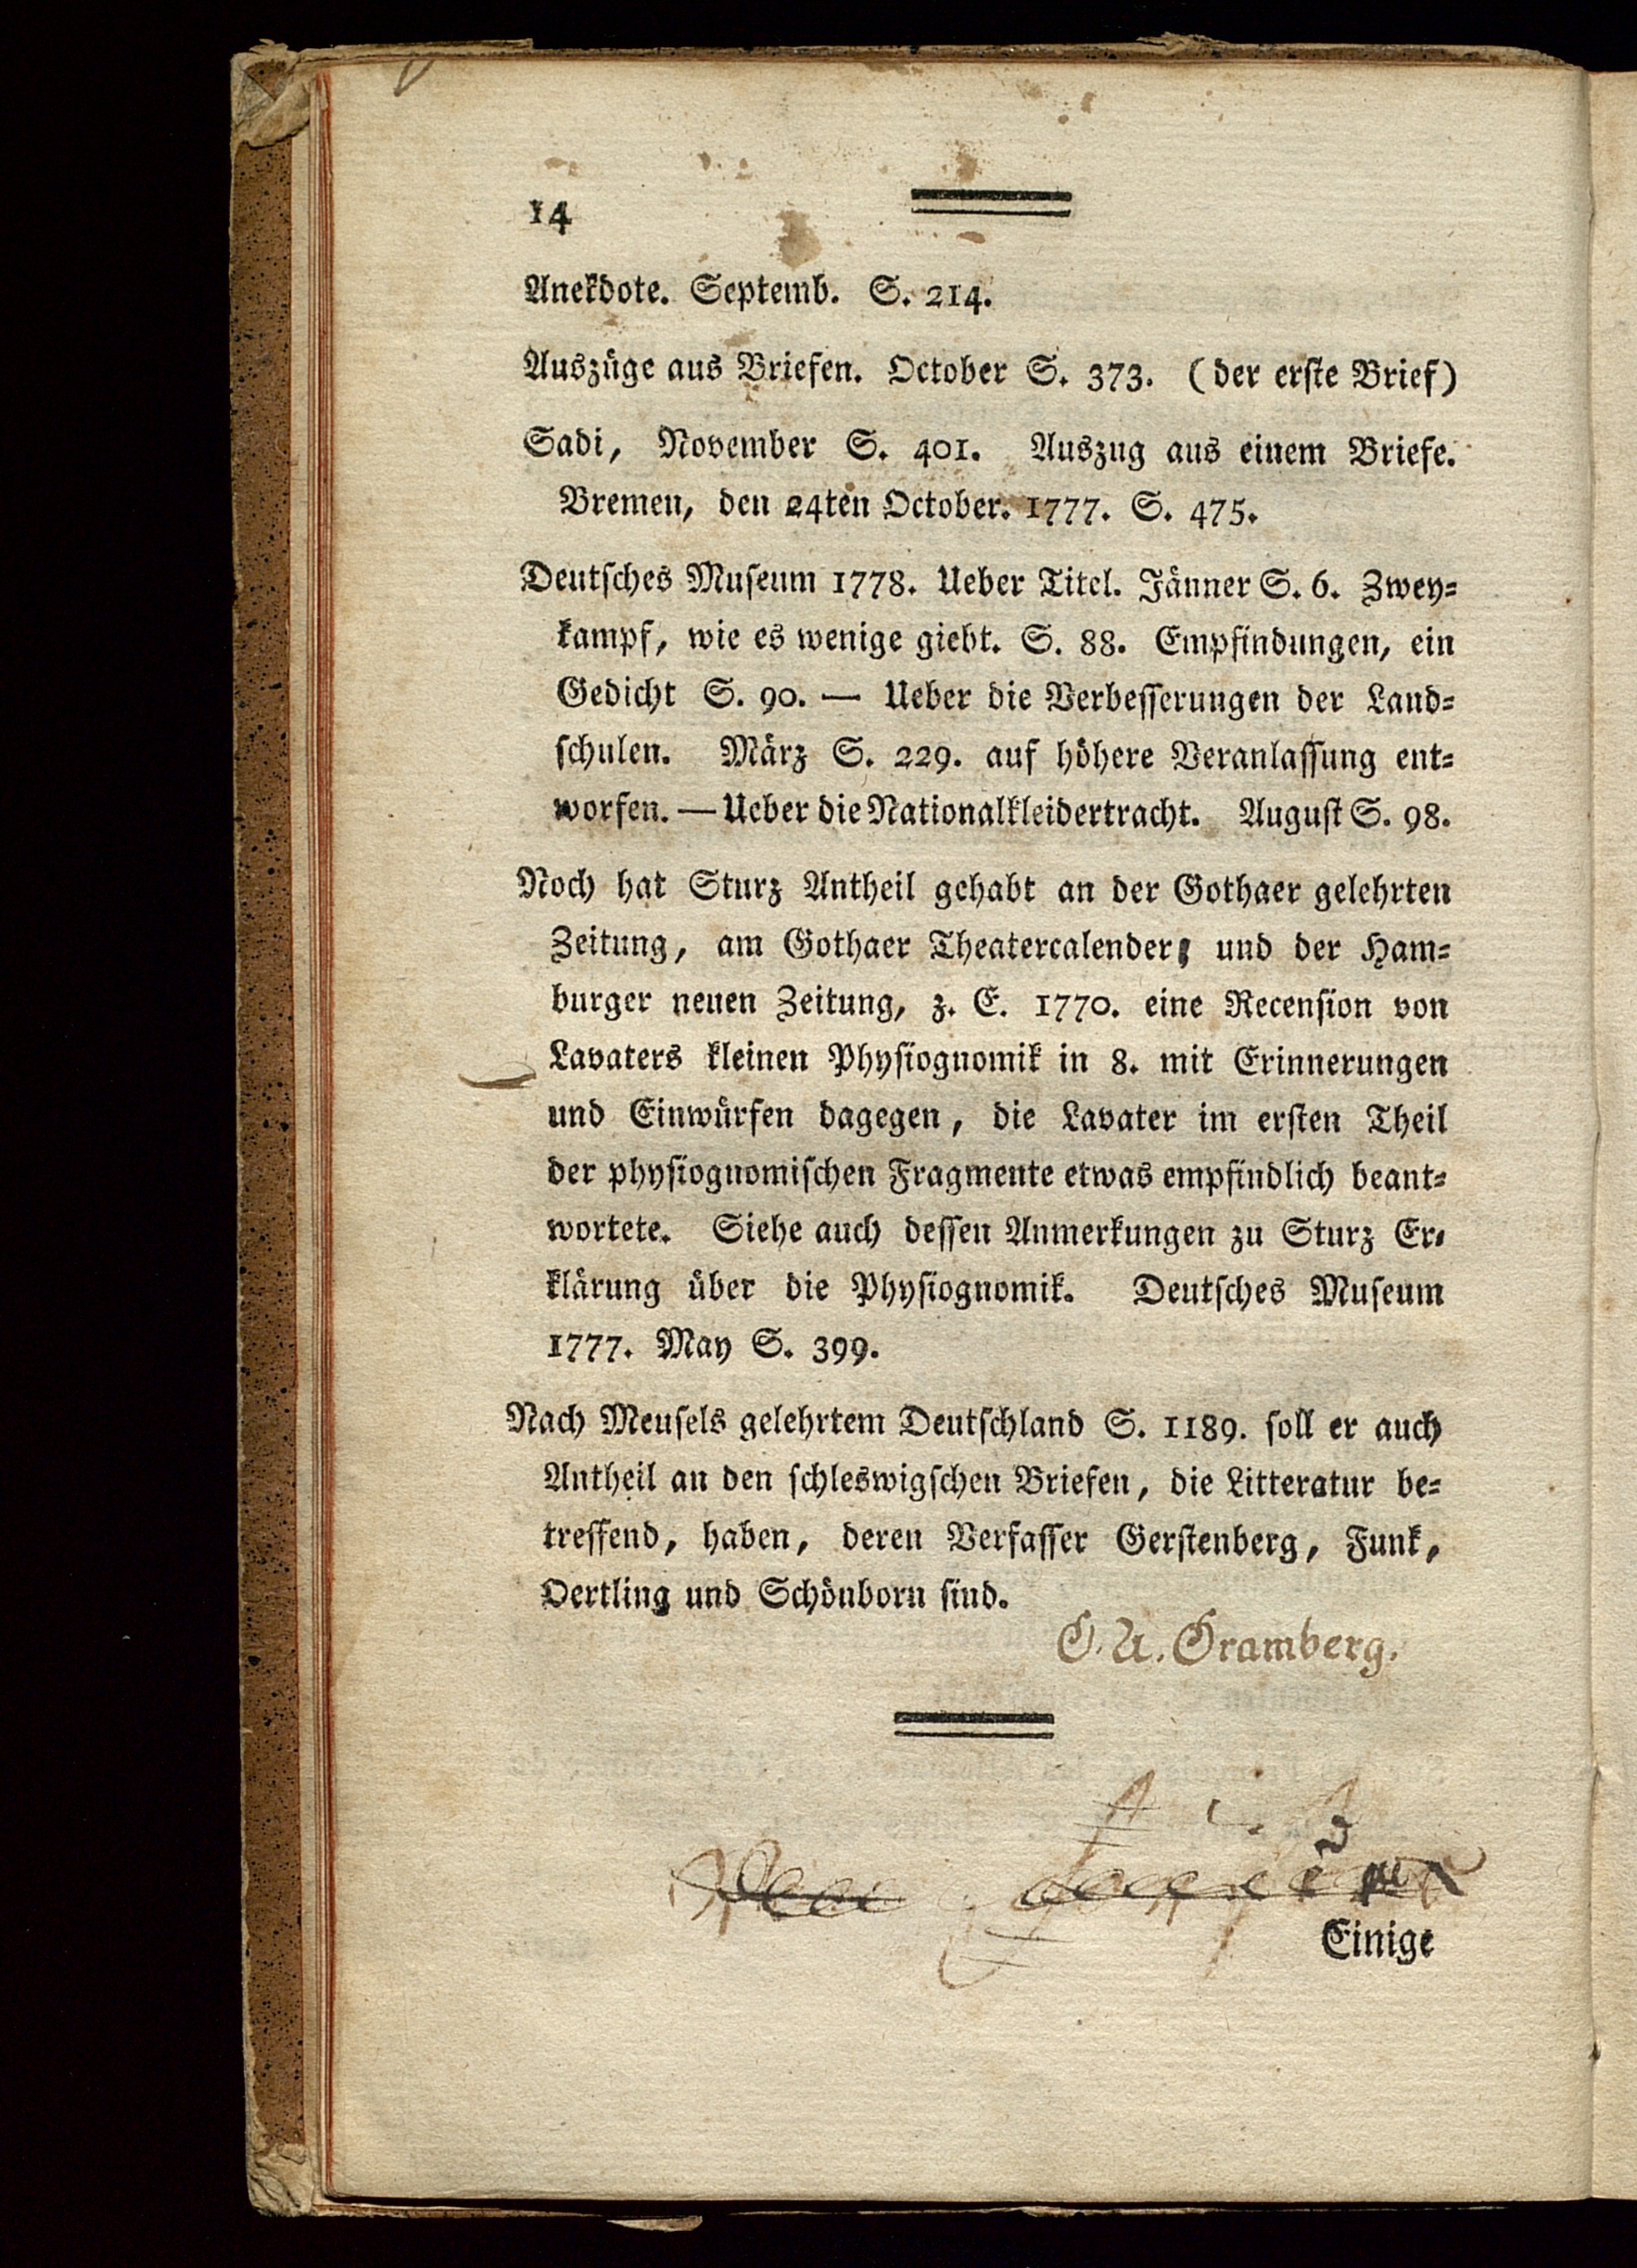 14
Anekdote. Septemb. S. 214.
Auszüge aus Briefen. October S. 373. (der erste Brief)
Sadi, November S. 401. Auszug aus einem Briefe.
Bremen, den 24ten October. 1777. S. 475.
Deutsches Museum 1778. Ueber Titel. Jänner S. 6. Zwey-
kampf, wie es wenige giebt. S. 88. Empfindungen, ein
Gedicht S. 90. — Ueber die Verbesserungen der Land-
schulen. März S. 229. auf höhere Veranlassung ent-
worfen. — Ueber die Nationalkleidertracht. August S. 98.
Noch hat Sturz Antheil gehabt an der Gothaer gelehrten
Zeitung, am Gothaer Theatercalender, und der Ham-
burger neuen Zeitung, z. E. 1770. eine Recension von
Lavaters kleinen Physiognomik in 8. mit Erinnerungen
und Einwürfen dagegen, die Lavater im ersten Theil
der physiognomischen Fragmente etwas empfindlich beant-
wortete. Siehe auch dessen Anmerkungen zu Sturz Er-
klärung über die Physiognomik. Deutsches Museum
1777. May S. 399.
Nach Meusels gelehrtem Deutschland S. 1189. soll er auch
Antheil an den schleswigschen Briefen, die Litteratur be-
treffend, haben, deren Verfasser Gerstenberg, Funk,
Oertling und Schönborn sind.
G. A. Gramberg.
Einige